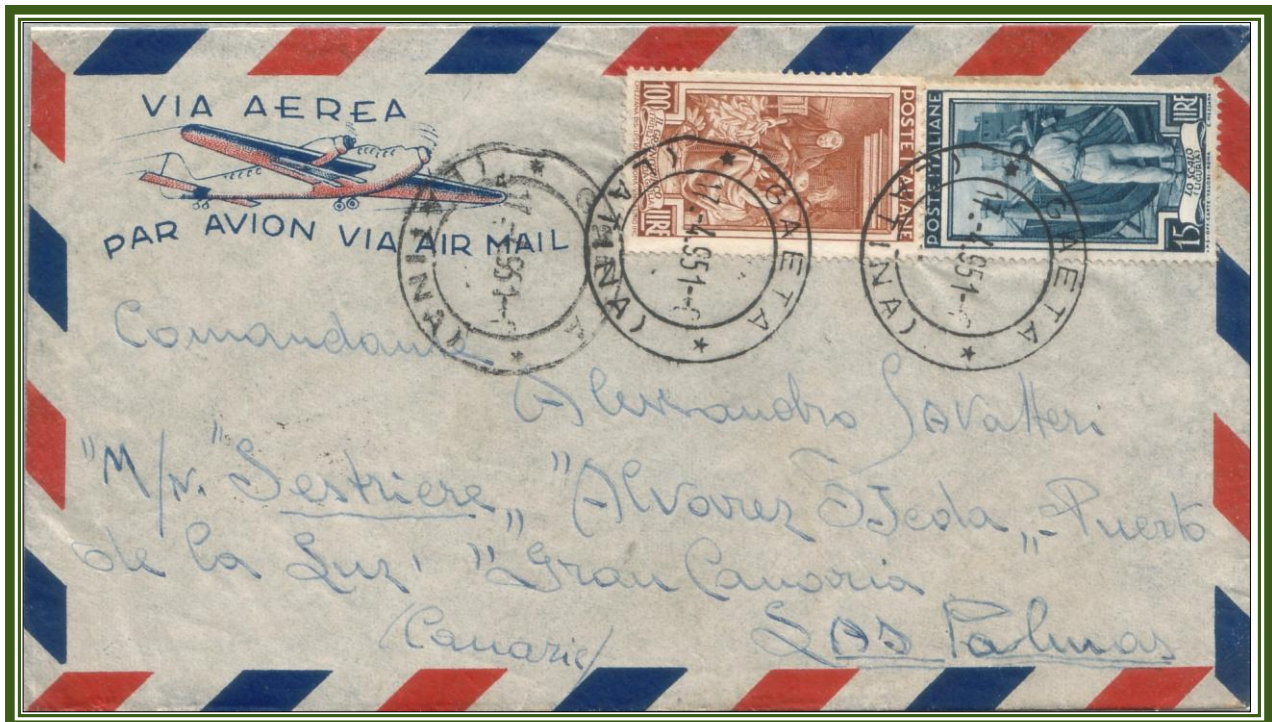 VIA AEREA
PAR AVION VIA AIR MAIL
100 LIRE
POSTE ITALIANE
POSTE ITALIANE
15 LIRE
LO SCALO
(LIGURIA)
GAETA
(LATINA)
17.-4.951-
GAETA
(LATINA)
17.-4.951-
GAETA
(LATINA)
17.-4.951-
Comandante
Alessandro Savatteri
"M/n. "Sestriere„ "Alvarez OJeda„ - Puerto
de la Luz' "Gran Canaria„
(Canarie) Las Palmas